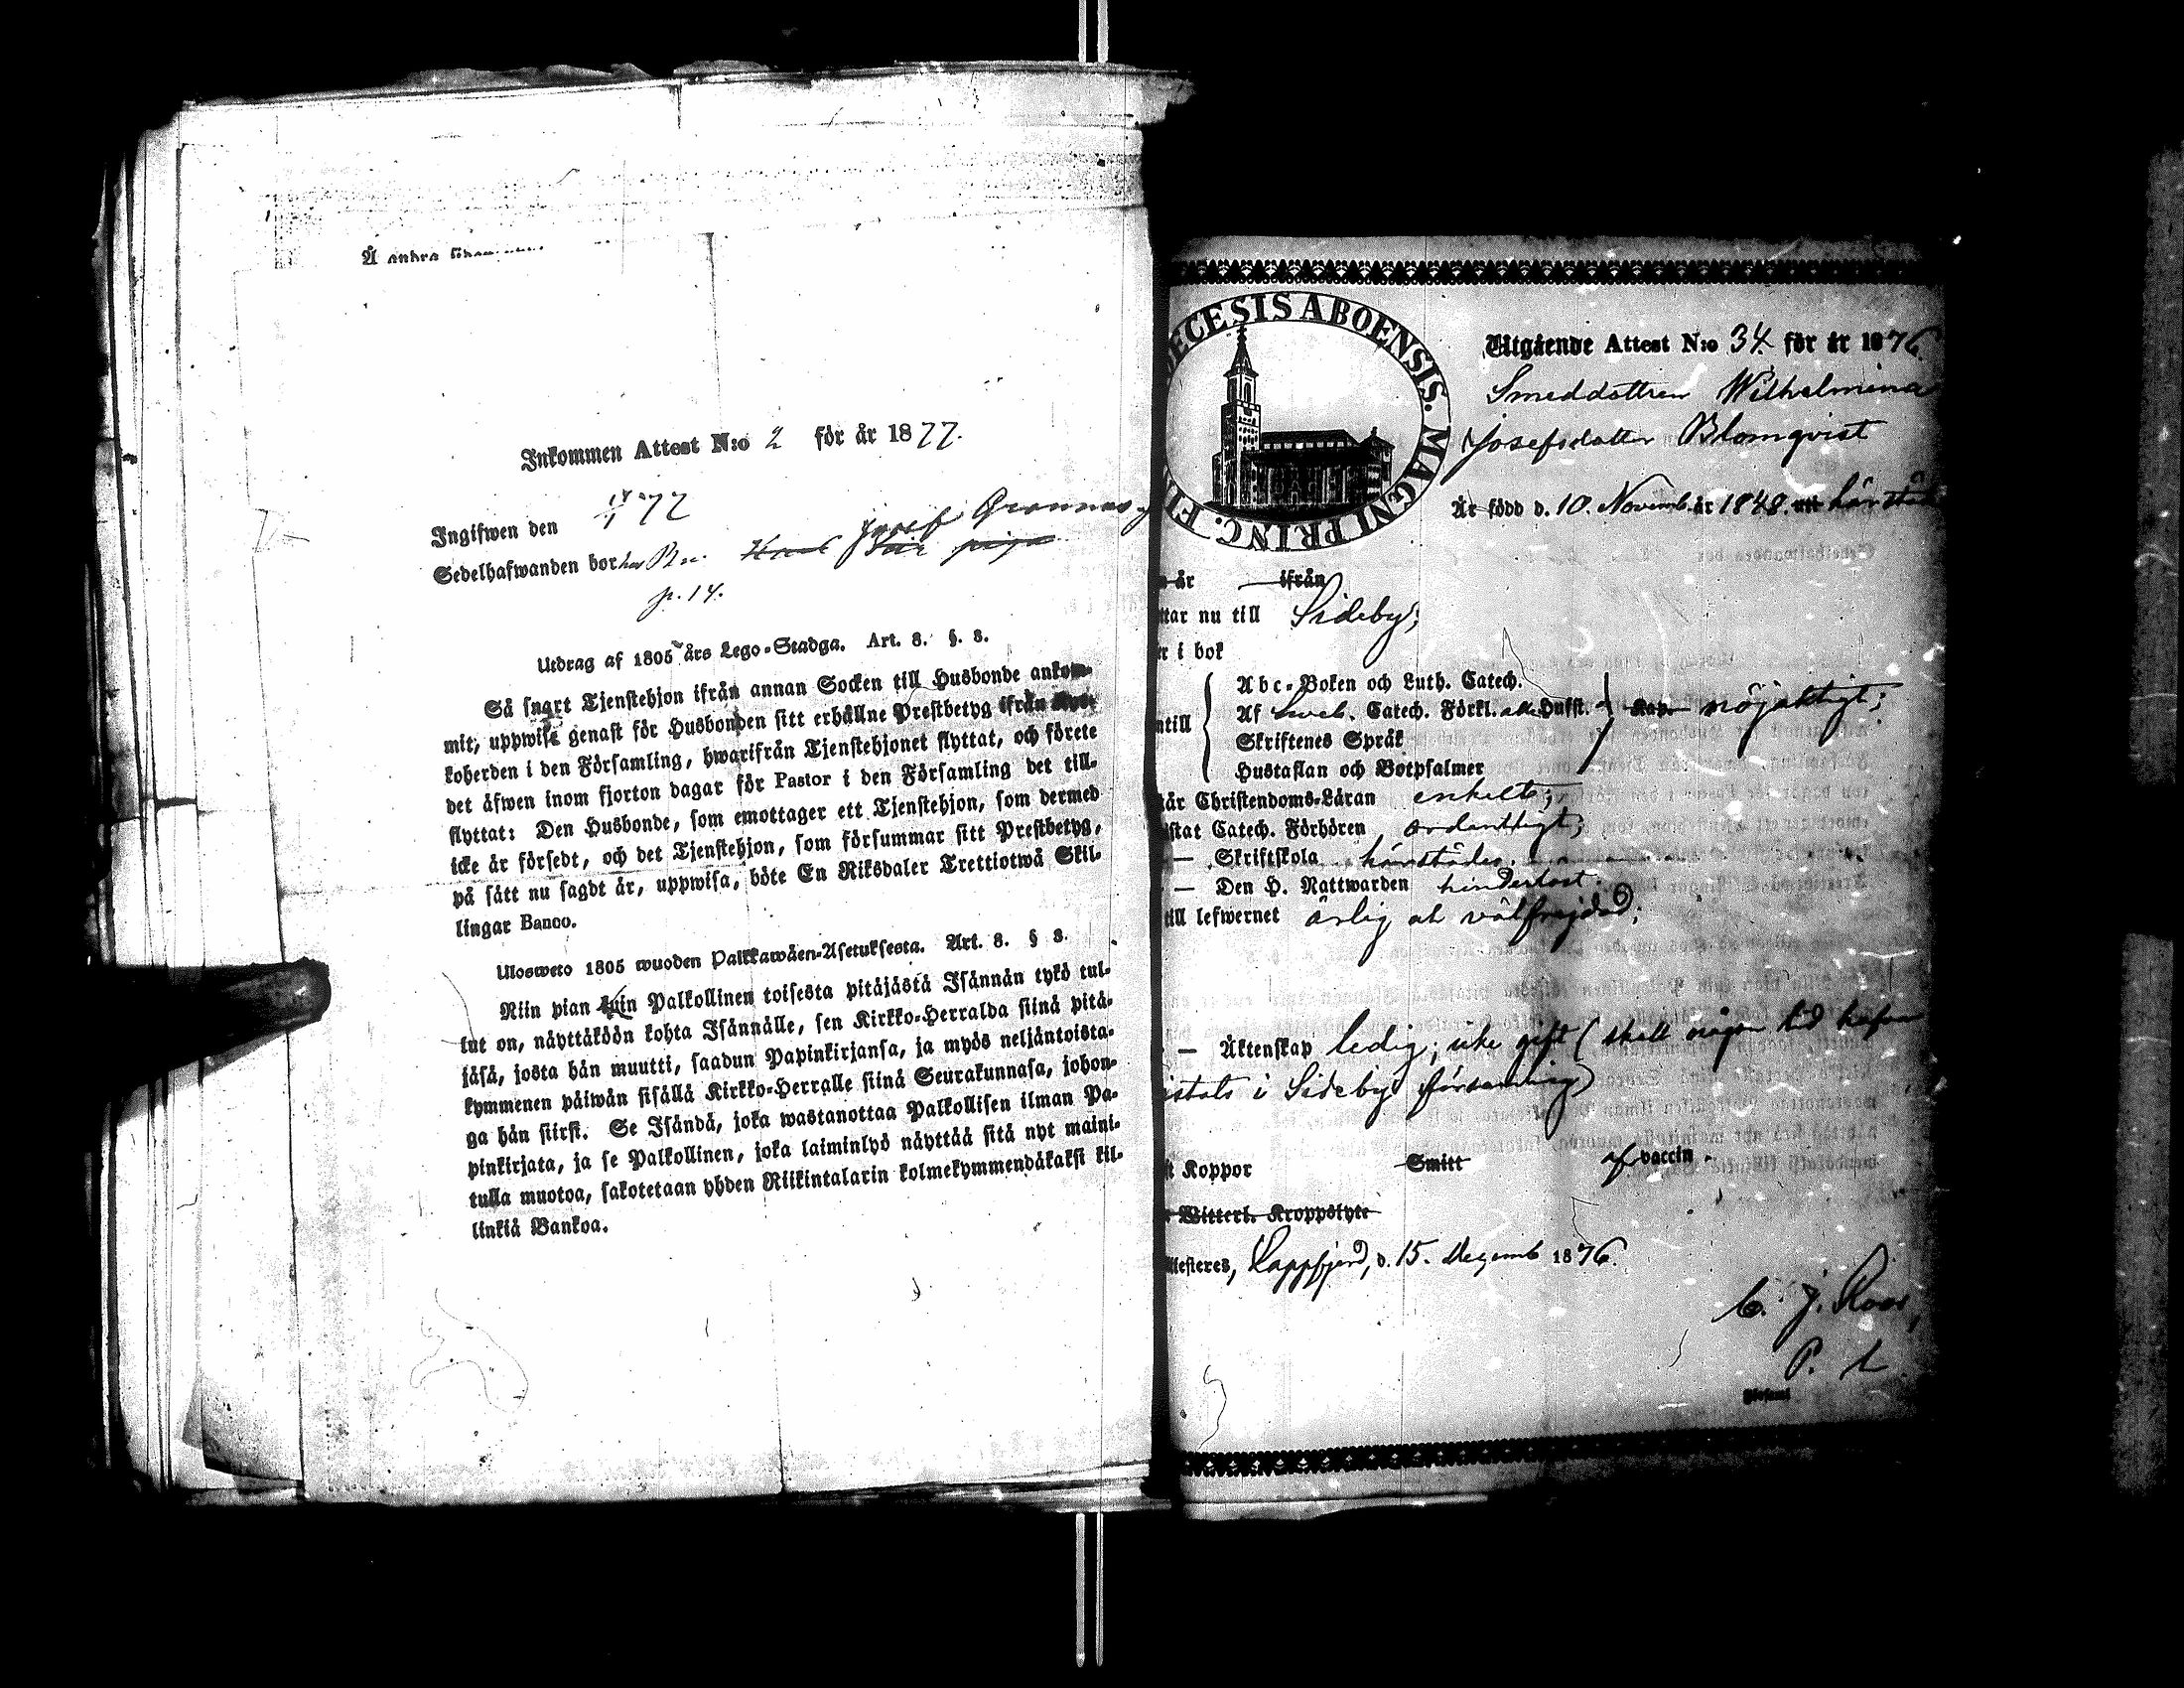 Å andra sidan
Inkommen Attest N:o 2 för år 1877.
Ingifwen den 14/1 77
Josef Grannas
Sedelhafwanden bor hos
p. 14.
Utdrag af 1805 års Lego-Stadga. Art. 8. §. 8.
Så snart Tjenstehjon ifrån annan Socken till Husbonde ankom-
mit, uppwise genast för Husbonden sitt erhållne Prestbetyg ifrån Kyr-
koherden i den Församling, hwarifrån Tjenstehjonet flyttat, och förete
det äfwen inom fjorton dagar för Pastor i den Församling det till-
flyttat: Den Husbonde, som emottager ett Tjenstehjon, som dermed
icke är försedt, och det Tjenstehjon, som försummar sitt Prestbetyg,
på sätt nu sagdt är, uppwisa, böte En Riksdaler Trettiotwå Skil-
lingar Banco.
Ulosweto 1805 wuoden Palkkawäen-Asetuksesta. Art. 8. § 8.
Niin pian kuin Palkollinen toisesta pitäjästä Isännän tykö tul-
lut on, näyttäköön kohta Isännälle, sen Kirkko-Herralda siinä pitä-
jäsä, josta hän muutti, saadun Papinkirjansa, ja myös neljäntoista-
kymmenen päiwän sisällä Kirkko-Herralle siinä Seurakunnasa, johon-
ga hän siirsi. Se Isändä, joka wastanottaa Palkollisen ilman Pa-
pinkirjata, ja se Palkollinen, joka laiminlyö näyttää sitä nyt maini-
tulla muotoa, sakotetaan yhden Riikintalarin kolmekymmendäkaksi kil-
linkiä Bankoa.
DIOECESIS ABOENSIS. MAGNI PRINC. FIN
Utgående Attest N:o 34 för år 1876.
Smeddottren Wilhelmina
Josefsdotter Blomqvist
Är född d. 10. Novemb. år 1848. härstäd
är ifrån
ttar nu till Sideby;
r i bok
Abc-Boken och Luth. Catech.
Af Sveb. Catech. Förkl. Hufst. Kap. nöjaktigt;
ntill
Skriftenes Språk
Hustaflan och Botpsalmer
går Christendoms-Läran enkelt;
istat Catech. Förhören ordentligt;
— Skriftskola härstädes.
— Den H. Nattwarden hinderlöst.
till lefwernet ärlig och välfrejdad;
— Äktenskap ledig; icke gift (skall någon tid hafva
istats i Sideby församling)
t Koppor Smitt af vaccin.
Witterl. Kroppslyte
Attesteres, Lappfjerd, d. 15. Decemb 1876.
C. J. Roos,
P. L.